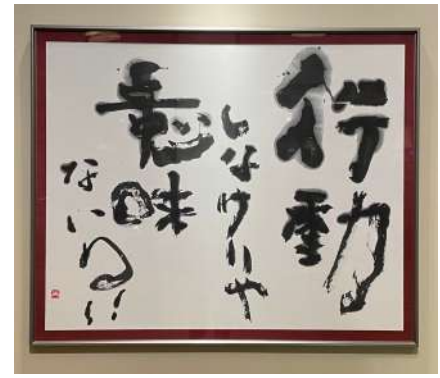 行動
しなけりゃ
意味
ないわ!!